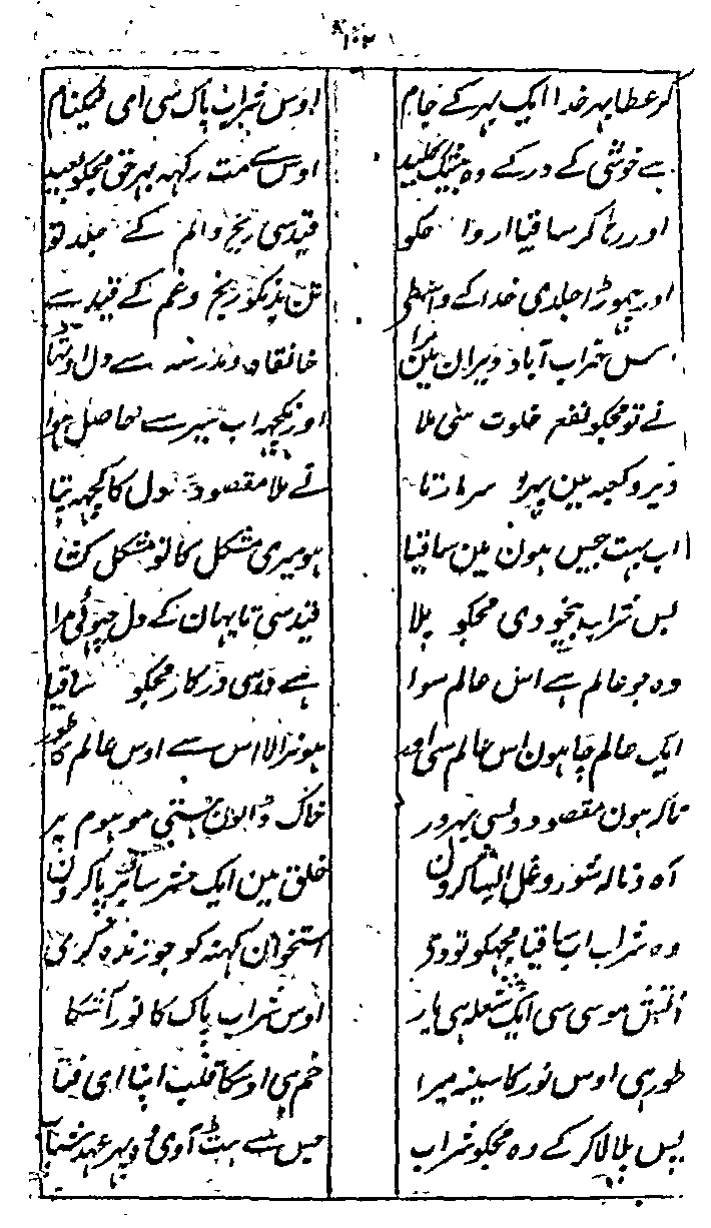 ۱۰۲
کر عطا بہر خدا ایک بہر کے جام اوس شراب پاک سی ای نیکنام
ہے خوشی کے در کے وہ بیشک کلید اوس سے مت رکہہ بہر حق مجکو بعید
اور رہا کر ساقیا اروا مکو قید سی رنج و الم کے جلد تو
اور چہوڑا جلدی خدا کے واسطی تن پذیکو رنج و غم کے قید سے
بس خراب آباد ویران مین مرا خانقاہ و مدرسہ سے دل اوٹہا
نے تو مجکو نفع خلوت سی ملا اور نکچہہ اب سیر سے حاصل ہوا
دیر و کعبہ مین پہرا سر مارتا نے ملا مقصود دل کا کچہہ پتا
اب بہت جیس ہون مین ساقیا ہو میری مشکل کا تو مشکل کشا
بس شراب بیخودی مجکو پلا قید سی تا یہان کے دل چہوٹی مرا
وہ جو عالم ہے اس عالم سوا ہے وہی درکار مجکو ساقیا
ایک عالم چاہون اس عالم سی اور ہو نرالا اس سے اوس عالم کا طور
تاکہ ہون مقصود دلسی بہرور خاک ڈالون ہستی موہوم پر
آہ و نالہ شور و غل ایسا کرون خلق مین ایک حشر سا برپا کرون
وہ شراب اب ساقیا مجہکو تو دی استخوان کہنہ کو جو زندہ کری
آتش موسی سی ایک شعلہ ہی یار اوس شراب پاک کا نور آشکا
طور ہی اوس نور کا سینہ میرا خم ہی اوسکا قلب اپنا ای فتا
بس پلا لا کر کے وہ مجکو شراب جس سے ہٹ آوی وہ پہر عہد شباب